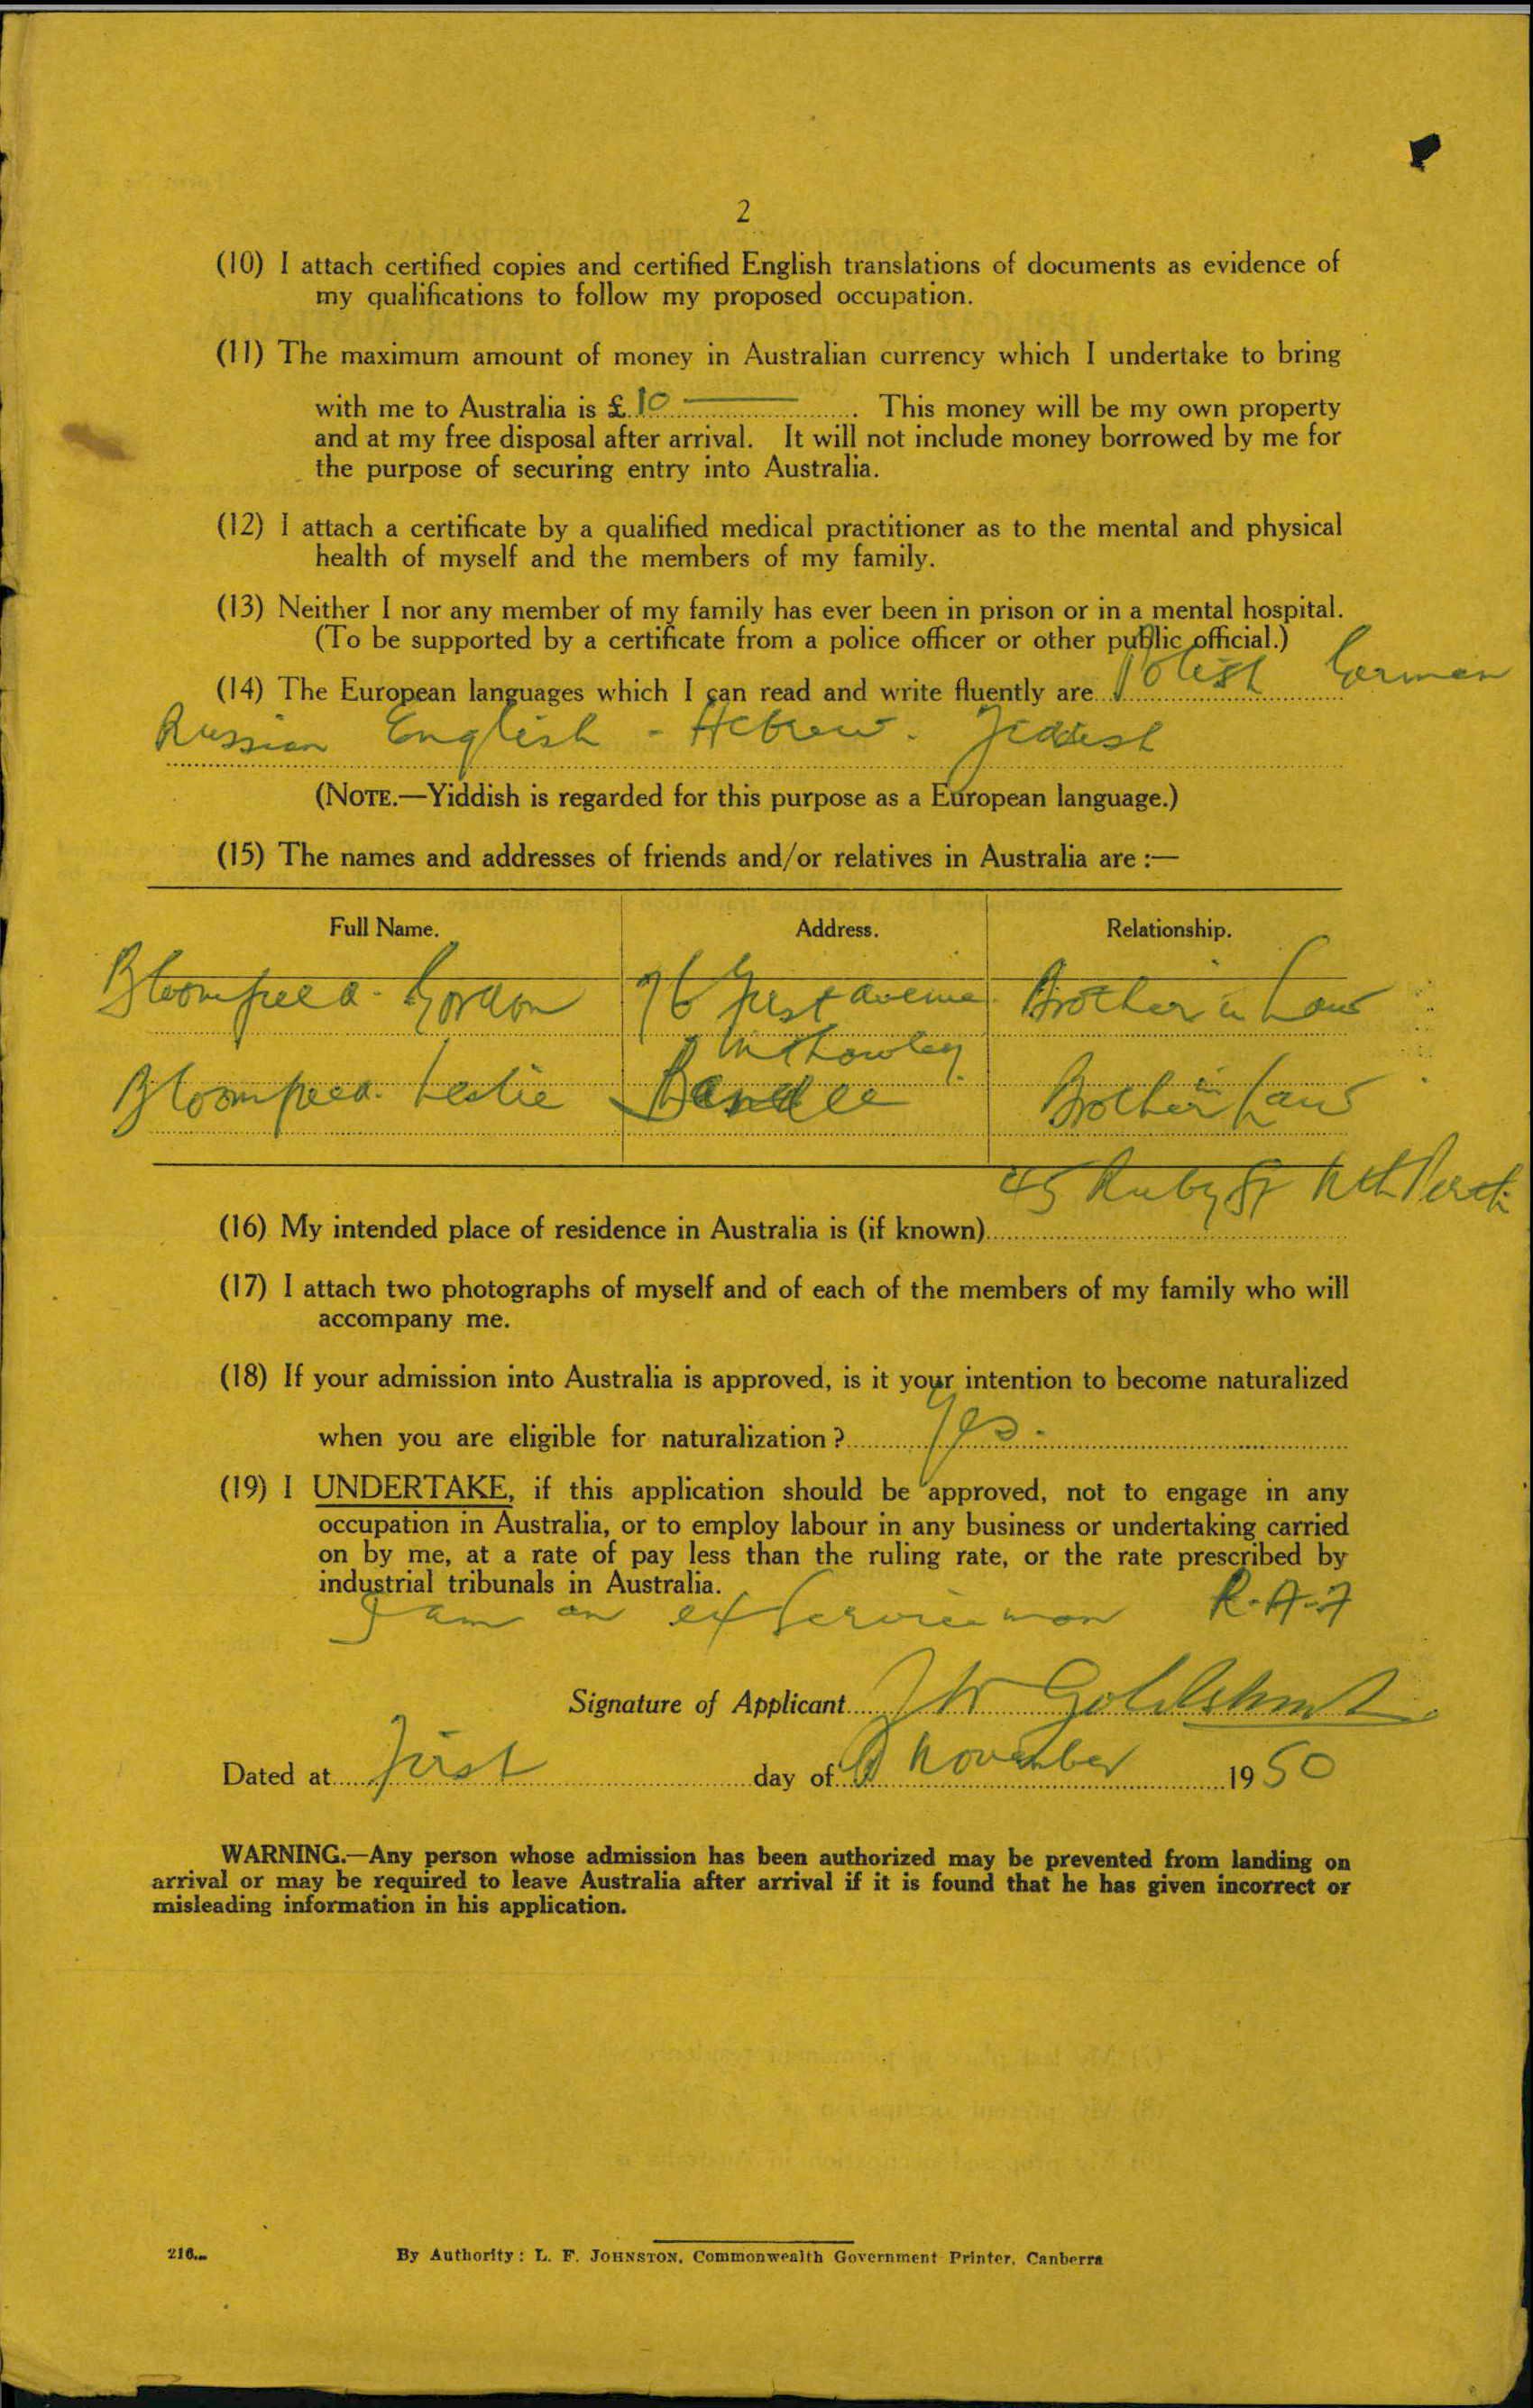 2
(10) I attach certified copies and certified English translations of documents as evidence of
my qualifications to follow my proposed occupation.
(11) The maximum amount of money in Australian currency which I undertake to bring
with me to Australia is £ 10 —. This money will be my own property
and at my free disposal after arrival. It will not include money borrowed by me for
the purpose of securing entry into Australia.
(12) I attach a certificate by a qualified medical practitioner as to the mental and physical
health of myself and the members of my family.
(13) Neither I nor any member of my family has ever been in prison or in a mental hospital.
(To be supported by a certificate from a police officer or other public official.)
(14) The European languages which I can read and write fluently are Polish German
Russian English - Hebrew. Jiddish
(NOTE.—Yiddish is regarded for this purpose as a European language.)
(15) The names and addresses of friends and/or relatives in Australia are :—
Full Name. Address. Relationship.
Bloomfield. Gordon 76 First Avenue Brother in Law
Mt Lawley
Bloomfield. Leslie Brother in Law
45 Ruby St Nth Perth
(16) My intended place of residence in Australia is (if known)
(17) I attach two photographs of myself and of each of the members of my family who will
accompany me.
(18) If your admission into Australia is approved, is it your intention to become naturalized
when you are eligible for naturalization ? Yes.
(19) I UNDERTAKE, if this application should be approved, not to engage in any
occupation in Australia, or to employ labour in any business or undertaking carried
on by me, at a rate of pay less than the ruling rate, or the rate prescribed by
industrial tribunals in Australia.
I am an ex Service man R.A.F
Signature of Applicant Goldshmit
Dated at First day of November 1950
WARNING.—Any person whose admission has been authorized may be prevented from landing on
arrival or may be required to leave Australia after arrival if it is found that he has given incorrect or
misleading information in his application.
216.— By Authority : L. F. JOHNSTON, Commonwealth Government Printer, Canberra